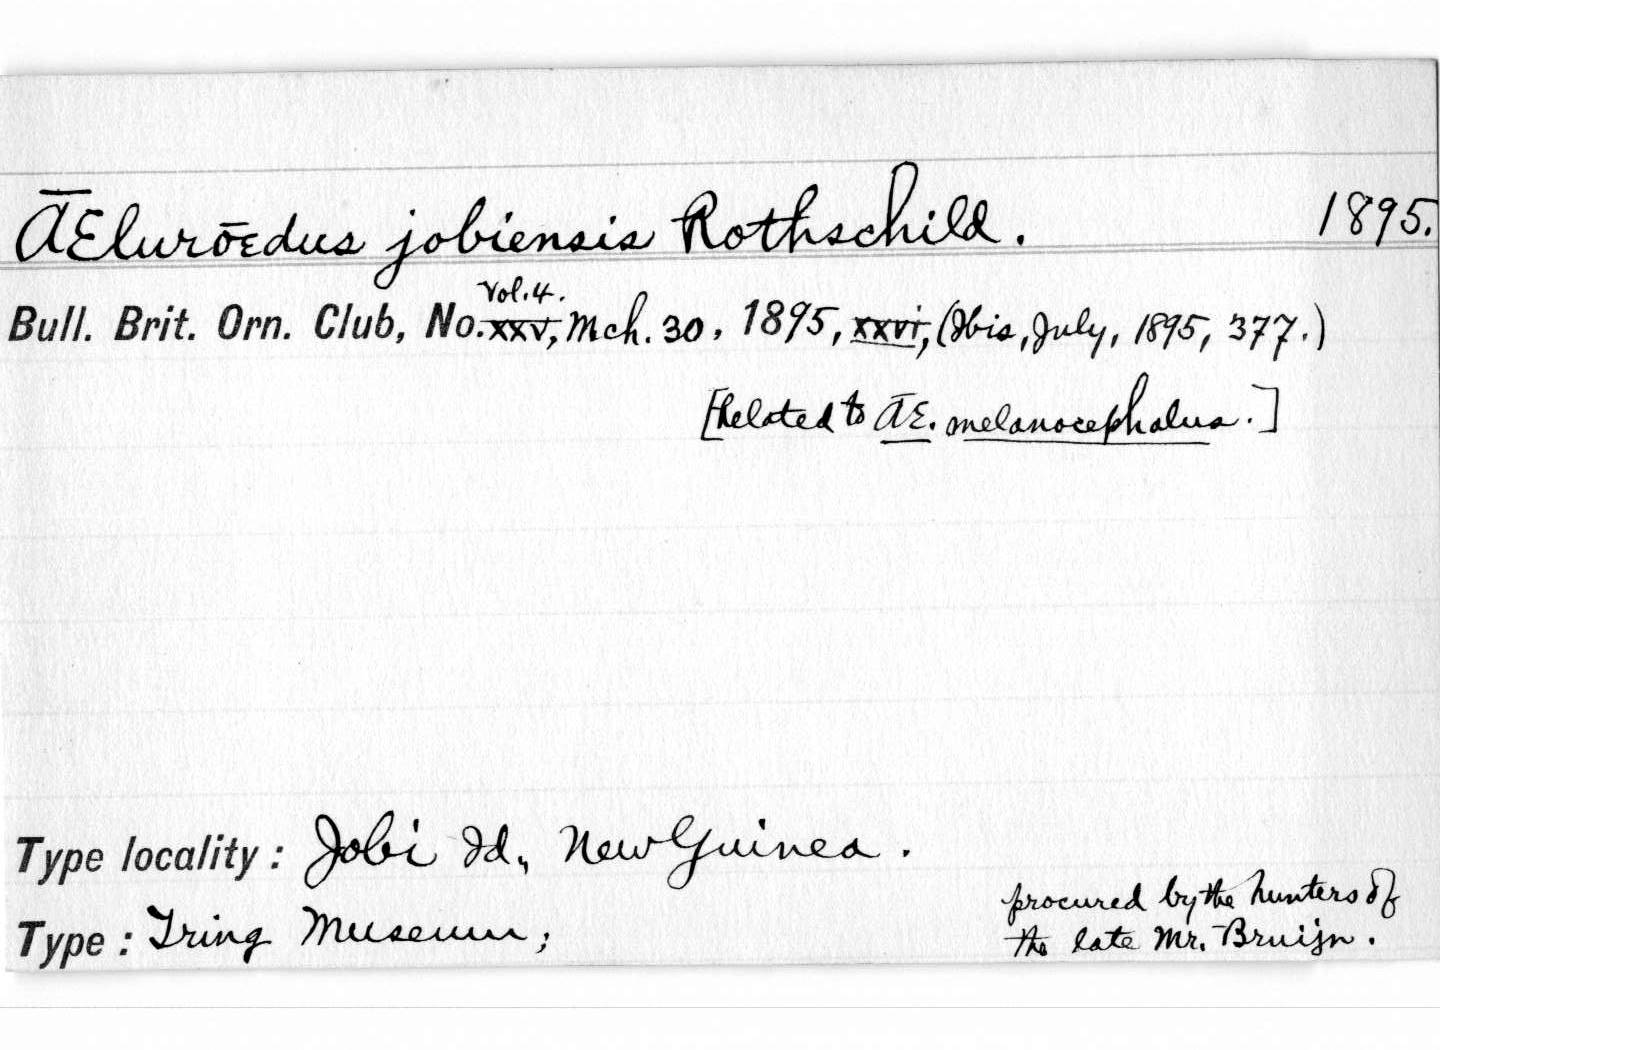 ÆElurœdus jobiensis Rothschild. 1895.
Vol. 4.
Bull. Brit. Orn. Club, No. xxv, Mch. 30, 1895, xxvi, (Ibis, July, 1895, 377.)
[Related to Æ. melanocephalus.]
Type locality: Jobi Id., New Guinea.
Type: Tring Museum; procured by the hunters of
the late Mr. Bruijn.